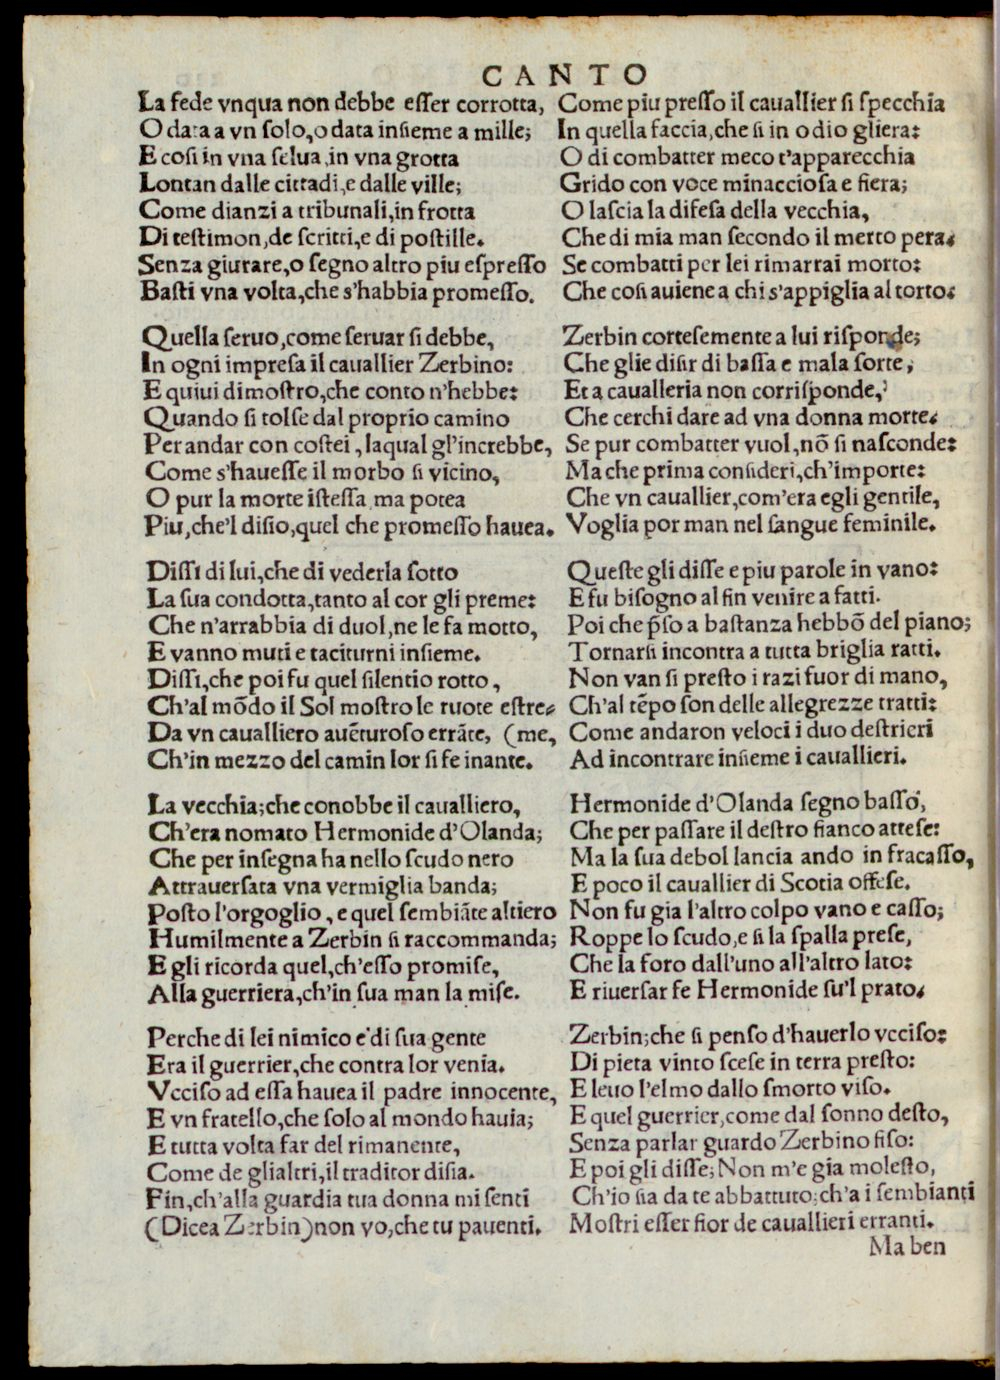 CANTO
La fede vnqua non debbe esser corrotta,
O data a vn solo, o data insieme a mille;
E cosi in vna selua, in vna grotta
Lontan dalle cittadi, e dalle ville;
Come dianzi a tribunali, in frotta
Di testimon, de scritti, e di postille.
Senza giurare, o segno altro piu espresso
Basti vna volta, che s'habbia promesso.
Quella seruo, come seruar si debbe,
In ogni impresa il cauallier Zerbino:
E quiui dimostro, che conto n'hebbe:
Quando si tolse dal proprio camino
Per andar con costei, laqual gl'increbbe,
Come s'hauesse il morbo si vicino,
O pur la morte istessa ma potea
Piu, che'l disio, quel che promesso hauea.
Dissi di lui, che di vederla sotto
La sua condotta, tanto al cor gli preme:
Che n'arrabbia di duol, ne le fa motto,
E vanno muti e taciturni insieme.
Dissi, che poi fu quel silentio rotto,
Ch'al mõdo il Sol mostro le ruote estre⸗
Da vn caualliero auẽturoso errãte, (me,
Ch'in mezzo del camin lor si fe inante.
La vecchia; che conobbe il caualliero,
Ch'era nomato Hermonide d'Olanda;
Che per insegna ha nello scudo nero
Attrauersata vna vermiglia banda;
Posto l'orgoglio, e quel sembiãte altiero
Humilmente a Zerbin si raccommanda;
E gli ricorda quel, ch'esso promise,
Alla guerriera, ch'in sua man la mise.
Perche di lei nimico e di sua gente
Era il guerrier, che contra lor venia.
Vcciso ad essa hauea il padre innocente,
E vn fratello, che solo al mondo hauia;
E tutta volta far del rimanente,
Come de glialtri, il traditor disia.
Fin, ch'alla guardia tua donna mi senti
(Dicea Zerbin) non vo, che tu pauenti.
Come piu presso il cauallier si specchia
In quella faccia, che si in odio gliera:
O di combatter meco t'apparecchia
Grido con voce minacciosa e fiera;
O lascia la difesa della vecchia,
Che di mia man secondo il merto pera.
Se combatti per lei rimarrai morto:
Che cosi auiene a chi s'appiglia al torto.
Zerbin cortesemente a lui risponde;
Che glie disir di bassa e mala sorte,
Et a caualleria non corrisponde,
Che cerchi dare ad vna donna morte.
Se pur combatter vuol, nõ si nasconde:
Ma che prima consideri, ch'importe:
Che vn cauallier, com'era egli gentile,
Voglia por man nel sangue feminile.
Queste gli disse e piu parole in vano:
E fu bisogno al fin venire a fatti.
Poi che p̃so a bastanza hebbõ del piano;
Tornarsi incontra a tutta briglia ratti.
Non van si presto i razi fuor di mano,
Ch'al tẽpo son delle allegrezze tratti:
Come andaron veloci i duo destrieri
Ad incontrare insieme i cauallieri.
Hermonide d'Olanda segno basso,
Che per passare il destro fianco attese:
Ma la sua debol lancia ando in fracasso,
E poco il cauallier di Scotia offese.
Non fu gia l'altro colpo vano e casso;
Roppe lo scudo, e si la spalla prese,
Che la foro dall'uno all'altro lato:
E riuersar fe Hermonide su'l prato.
Zerbin; che si penso d'hauerlo vcciso:
Di pieta vinto scese in terra presto:
E leuo l'elmo dallo smorto viso.
E quel guerrier, come dal sonno desto,
Senza parlar guardo Zerbino fiso:
E poi gli disse; Non m'e gia molesto,
Ch'io sia da te abbattuto: ch'a i sembianti
Mostri esser fior de cauallieri erranti.
Ma ben